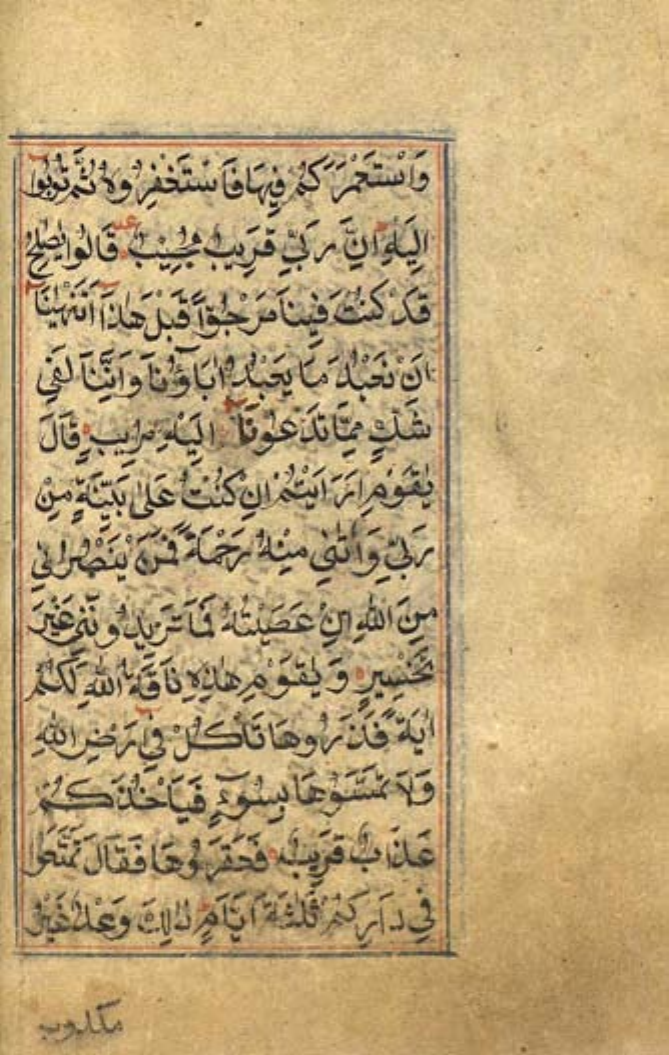 وَاسْتَعْمَرَكُمْ فِيهَا فَاسْتَغْفِرُوهُ ثُمَّ تُوبُوا
اِلَيْهِ اِنَّ رَبِّي قَرِيبٌ مُجِيبٌ قَالُوا يٰصٰلِحُ
قَدْ كُنْتَ فِينَا مَرْجُوًّا قَبْلَ هٰذَا اَتَنْهٰينَا
اَنْ نَعْبُدَ مَا يَعْبُدُ اٰبَاؤُنَا وَاِنَّنَا لَفِي
شَكٍّ مِمَّا تَدْعُونَا اِلَيْهِ مُرِيبٍ قَالَ
يٰقَوْمِ اَرَاَيْتُمْ اِنْ كُنْتُ عَلٰى بَيِّنَةٍ مِنْ
رَبِّي وَاٰتٰنِي مِنْهُ رَحْمَةً فَمَنْ يَنْصُرُنِي
مِنَ اللّٰهِ اِنْ عَصَيْتُهُ فَمَا تَزِيدُونَنِي غَيْرَ
تَخْسِيرٍ وَيٰقَوْمِ هٰذِهِ نَاقَةُ اللّٰهِ لَكُمْ
اٰيَةً فَذَرُوهَا تَاْكُلْ فِي رَضِ اللّٰهِ
وَلَا تَمَسُّوهَا بِسُوءٍ فَيَاْخُذَكُمْ
عَذَابٌ قَرِيبٌ فَعَقَرُوهَا فَقَالَ تَمَتَّعُوا
فِي دَارِكُمْ ثَلٰثَةَ اَيَّامٍ ذٰلِكَ وَعْدٌ غَيْرُ
مكذوب